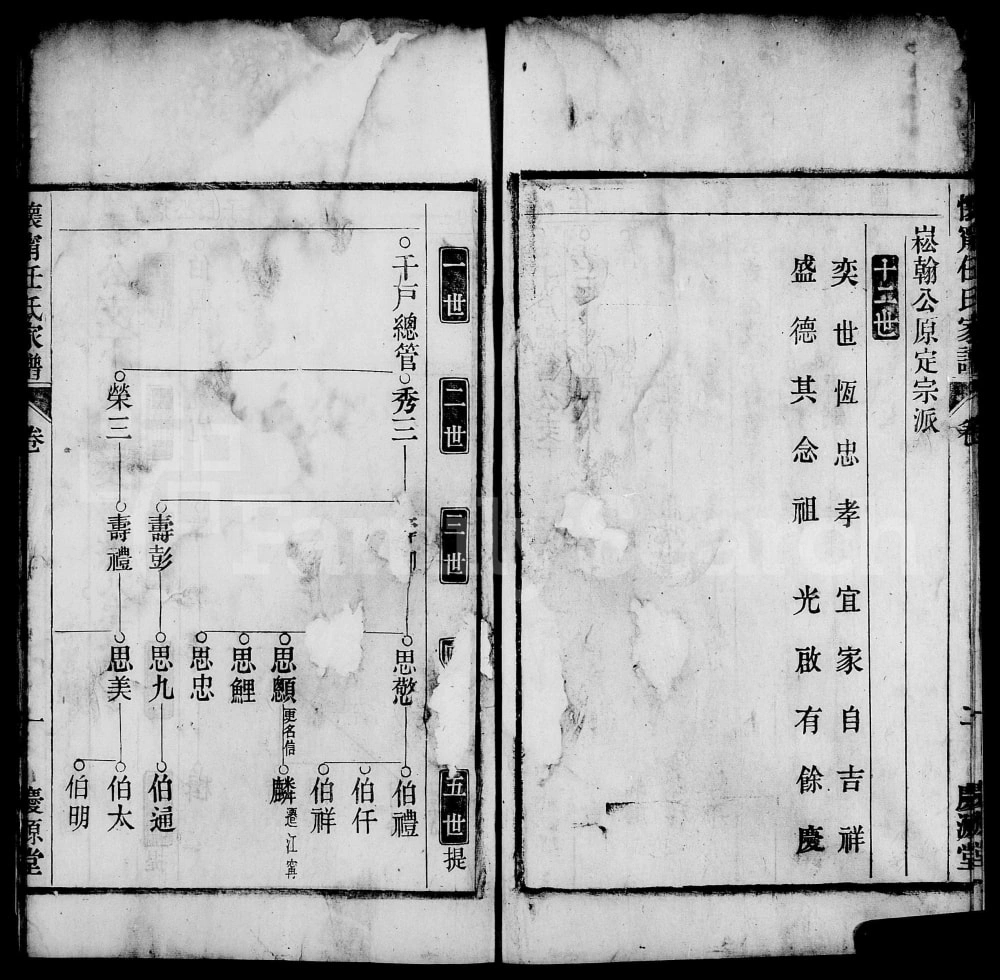 懷甯任氏家譜
卷
二
慶源堂
崧翰公原定宗派
十二世
奕世恆忠孝 宜家自吉祥
盛德其念祖 光啟有餘慶
一世 二世 三世 五世提
千戶總管 秀三
榮三
壽彭
壽禮
思慜
思顒 更名信
思鯉
思忠
思九
思美
伯禮
伯仟
伯祥
麟 遷江甯
伯通
伯太
伯明
懷甯任氏家譜
卷
一
慶源堂
FamilySearch